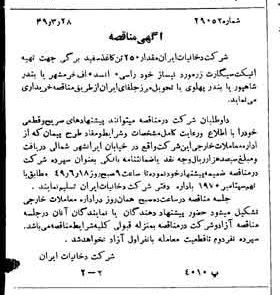 شماره ۲۹۰۵۲ ۴۹/۳/۲۸
آگهی مناقصه
شرکت دخانیات ایران مقدار ۲۵۰ تن کاغذ سفید برگی جهت تهیه
اتیکت سیگارت زر مورد نیاز خود را سی اند اف خرمشهر یا بندر
شاهپور یا بندر پهلوی یا تحویل مرز جلفای ایران از طریق مناقصه خریداری
می‌نماید.
داوطلبان شرکت در مناقصه میتوانند پیشنهادهای صریح و قطعی
خود را با اطلاع و رعایت کامل مشخصات و شرایط و مفاد طرح پیمان که از
اداره معاملات خارجی این شرکت واقع در خیابان ایرانشهر شمالی دریافت
و مبلغ سیصد هزار ریال وجه نقد یا ضمانتنامه بانکی بعنوان سپرده شرکت
در مناقصه ضمیمه پیشنهاد خود نموده تا ساعت ۹ صبح روز ۴۹/۶/۱۸ مطابق با
نهم سپتامبر ۱۹۷۰ باداره دفتر شرکت دخانیات ایران تسلیم نمایند.
جلسه مناقصه در ساعت ده صبح همان روز در اداره معاملات خارجی
تشکیل میشود حضور پیشنهاد دهندگان یا نمایندگان آنان در جلسه
مناقصه آزاد و شرکت در مناقصه بمنزله قبولی کلیه شرایط مناقصه می‌باشد.
سپرده نفر دوم تا قطعیت معامله با نفر اول آزاد نخواهد شد.
شرکت دخانیات ایران
پ ۴۰۱۰ ۲-۲